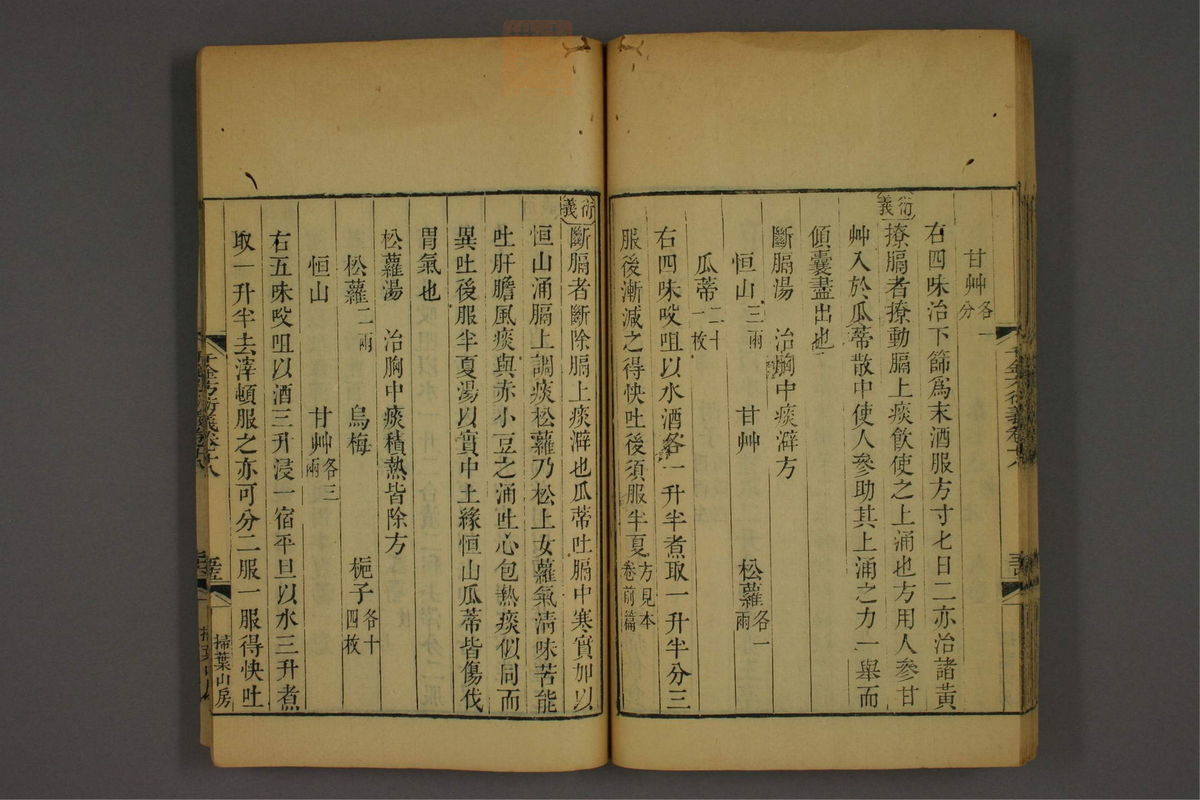 甘艸各一分
右四味治下篩為末酒服方寸七日二亦治諸黃
衍義
撩膈者撩動膈上痰飲使之上涌也方用人參甘
艸入於瓜蒂散中使人參助其上涌之力一舉而
傾囊盡出也
斷膈湯 治胸中痰澼方
恒山三兩 甘艸 松蘿各一兩
瓜蒂二十一枚
右四味㕮咀以水酒各一升半煮取一升半分三
服後漸減之得快吐後須服半夏方見本卷前篇
衍義
斷膈者斷除膈上痰澼也瓜蒂吐膈中寒實加以
恒山涌膈上調痰松蘿乃松上女蘿氣清味苦能
吐肝膽風痰與赤小豆之涌吐心包熱痰似同而
異吐後服半夏湯以實中土緣恒山瓜蒂皆傷伐
胃氣也
松蘿湯 治胸中痰積熱皆除方
松蘿二兩 烏梅 梔子各十四枚
恒山 甘艸各三兩
右五味㕮咀以酒三升浸一宿平旦以水三升煮
取一升半去滓頓服之亦可分二服一服得快吐
千金方衍義卷十八
掃葉山房